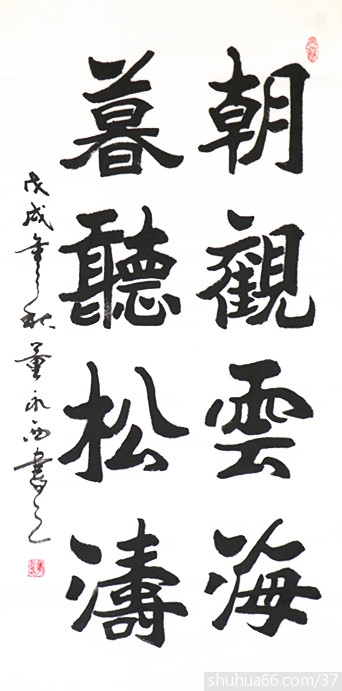 朝觀雲海
暮聽松濤
戊戌年秋董永西書之
shuhua66.com/37